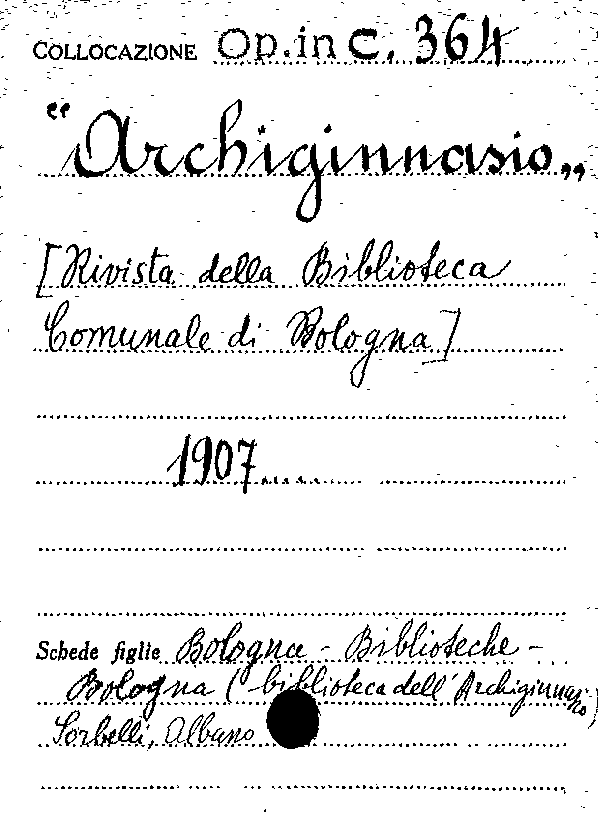 COLLOCAZIONE Op. in C. 364
“Archiginnasio„
[Rivista della Biblioteca
Comunale di Bologna]
1907......
Schede figlie Bologna - Biblioteche -
Bologna (biblioteca dell'Archiginnasio)
Sorbelli, Albano